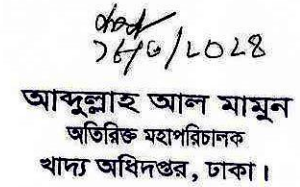 আব্দুল্লাহ আল মামুন
অতিরিক্ত মহাপরিচালক
খাদ্য অধিদপ্তর, ঢাকা।